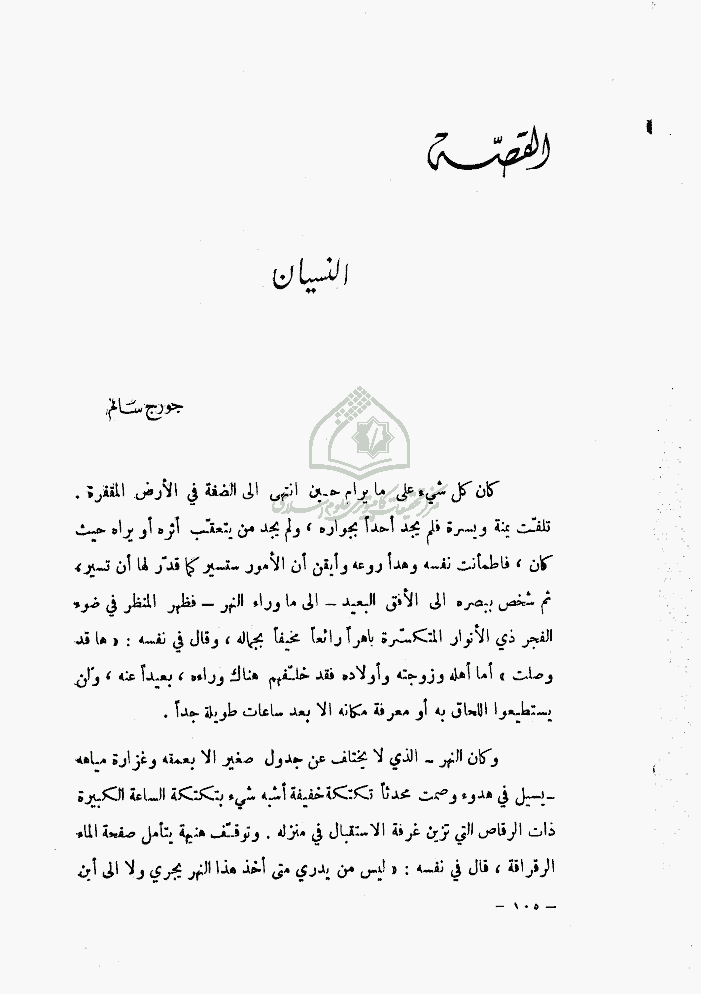 القصّـة
النسيان
جورج سالم
كان كل شيء على ما يرام حين انتهى الى الضفة في الأرض المقفرة .
تلفّت يمنة ويسرة فلم يجد أحداً بجواره ، ولم يجد من يتعقّب أثره أو يراه حيث
كان ، فاطمأنت نفسه وهدأ روعه وأيقن أن الأمور ستسير كما قدّر لها أن تسير ،
ثم شخص ببصره الى الأفق البعيد – الى ما وراء النهر – فظهر المنظر في ضوء
الفجر ذي الأنوار المتكسّرة باهراً رائعاً مخيفاً بجماله ، وقال في نفسه : « ها قد
وصلت » أما أهله وزوجته وأولاده فقد خلّفهم هناك وراءه ، بعيداً عنه ، ولن
يستطيعوا اللحاق به أو معرفة مكانه الا بعد ساعات طويلة جداً .
وكان النهر – الذي لا يختلف عن جدول صغير الا بعمقه وغزارة مياهه
– يسيل في هدوء وصمت محدثاً تكتكة خفيفة أشبه شيء بتكتكة الساعة الكبيرة
ذات الرقاص التي تزين غرفة الاستقبال في منزله . وتوقّف هنيهة يتأمل صفحة الماء
الرقراقة ، قال في نفسه : « ليس من يدري متى أخذ هذا النهر يجري ولا الى أين
– ١٠٥ –